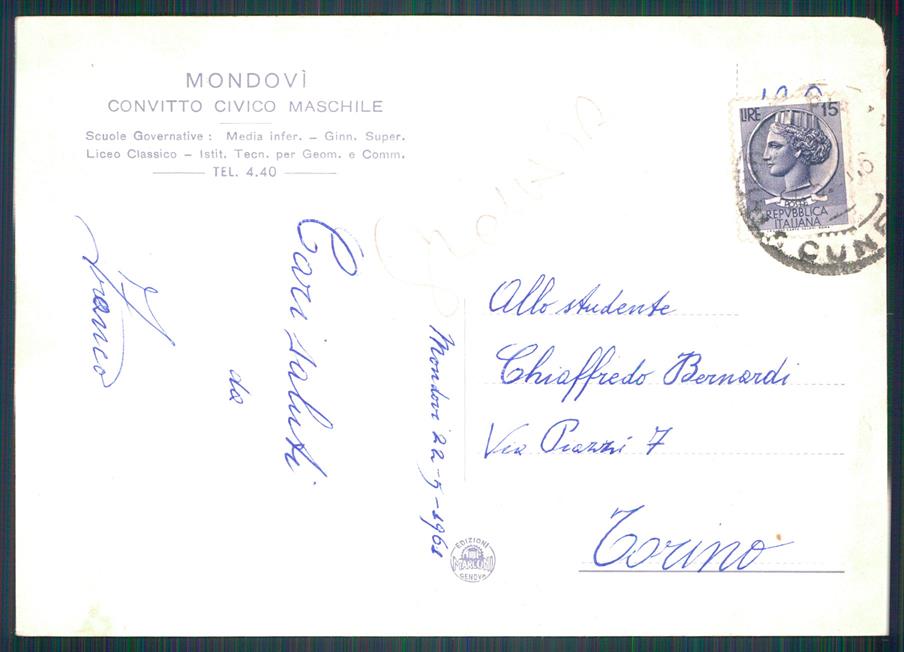 MONDOVÌ
CONVITTO CIVICO MASCHILE
Scuole Governative : Media infer. – Ginn. Super.
Liceo Classico – Istit. Tecn. per Geom. e Comm.
TEL. 4.40
Cari saluti
da
Franco
Mondovi 22-5-1961
Allo studente
Chiaffredo Bernardi
Via Piazzi 7
Torino
LIRE 15
POSTE
REPVBBLICA
ITALIANA
CUNE
EDIZIONI
MARCONI
GENOVA